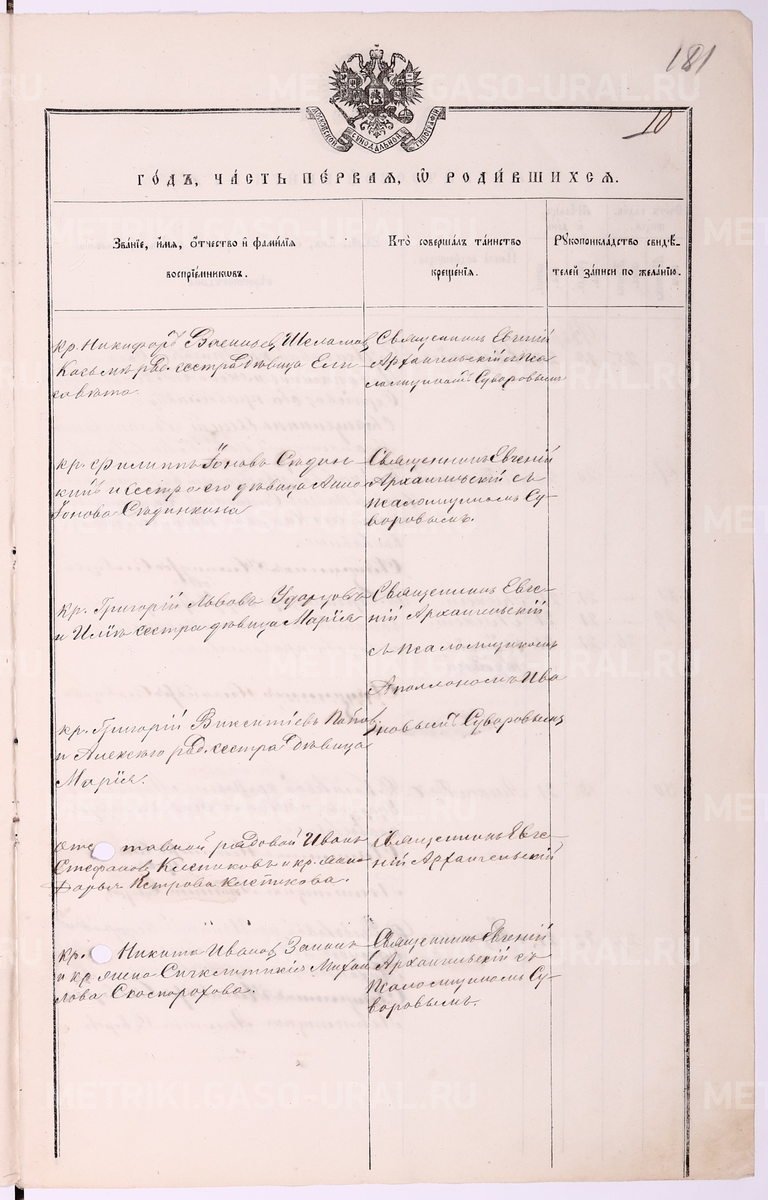 181
10
МОСКОВСКОЙ СѴНОДАЛЬНОЙ ТИПОГРАФІИ
ГО́ДЪ, ЧА́СТЬ ПЕ́РВАЯ, Ѽ РОДИ́ВШИХСЯ.
Зва́нїе, и҆́мя, ѻ҆́тчество и҆ фами́лїя
воспрїе́мникѡвъ.
Кто̀ соверша́лъ та́инство
креще́нїя.
Рꙋкоприкла́дство свидѣ́-
телей за́писи по жела́нїю.
кр. Никифоръ
сестра дѣвица Ели
савета
Священникъ Евгеній
Архангельскій
Суворовымъ
кр. Филиппъ Іоновъ Сѣдин-
кинъ и сестра его дѣвица Анна
Іонова Сѣдинкина
Священникъ Евгеній
Архангельскій съ
псаломщикомъ Су-
воровымъ.
кр. Григорій Львовъ
и сестра дѣвица Марія
Священникъ Евге-
ній Архангельскій
съ псаломщикомъ
Аполлономъ Ива
новымъ Суворовымъ
кр. Григорій Викентіевъ Поповъ
и Алексѣю род. сестра дѣвица
Марія.
отставной рядовой Иванъ
Стефановъ Клепиковъ и кр. жена
Дарья Петрова Клепикова.
Священникъ Евге-
ній Архангельскій
кр. Никита Ивановъ
и кр. жена Синклитикія Михаи
лова Скоспорохова.
Священникъ Евгеній
Архангельскій съ
Псаломщикомъ Су-
воровымъ.
METRIKI.GASO-URAL.RU